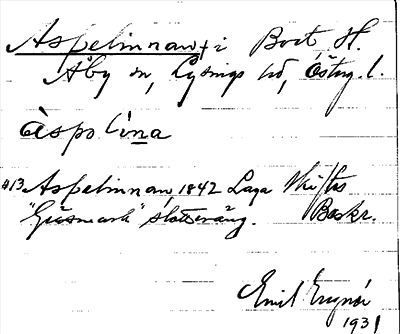 Aspelinnan, f i Bort H.
Åby sn, Lysings hd, Österg. l.
àspolína
#13 Aspelinnan, 1842 Laga Skiftes
"Gräsmark" slåtteräng. Beskr.
Emil
1931